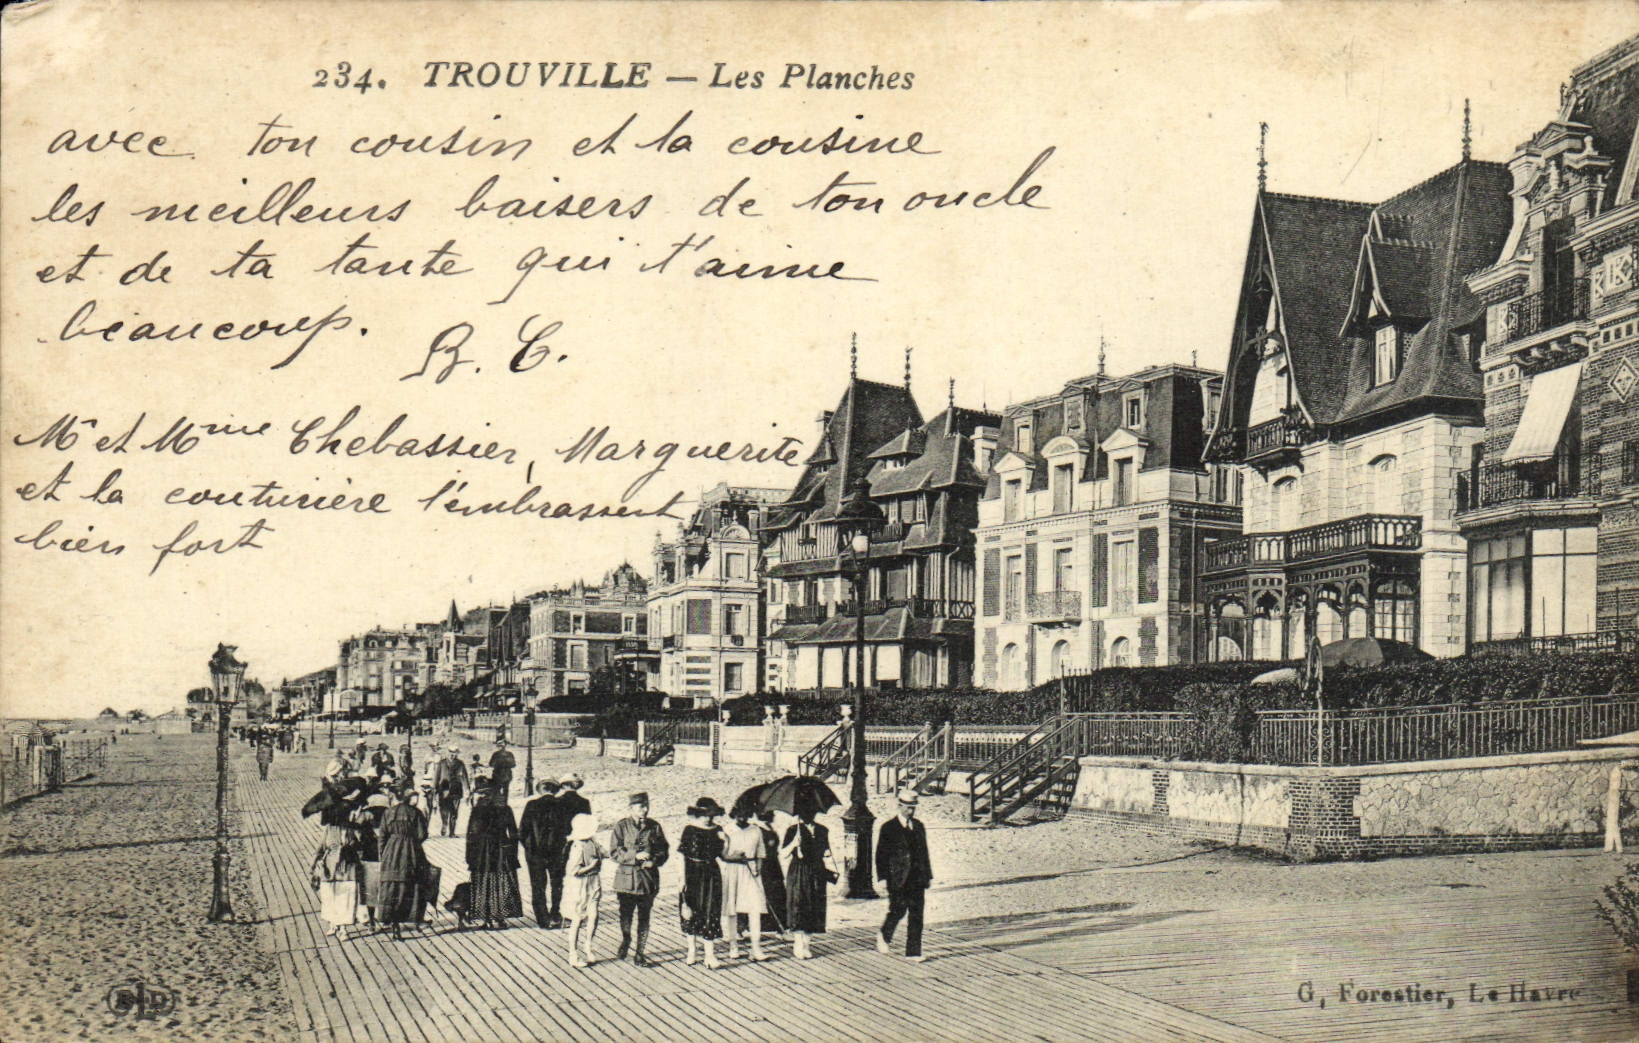 234. TROUVILLE — Les Planches
avec ton cousin et ta cousine
les meilleurs baisers de ton oncle
et de ta tante qui t'aime
beaucoup.
B. C.
Mr et Mme Chebassier, Marguerite
et la couturière t'embrassent
bien fort
ELD
G. Forestier, Le Havre